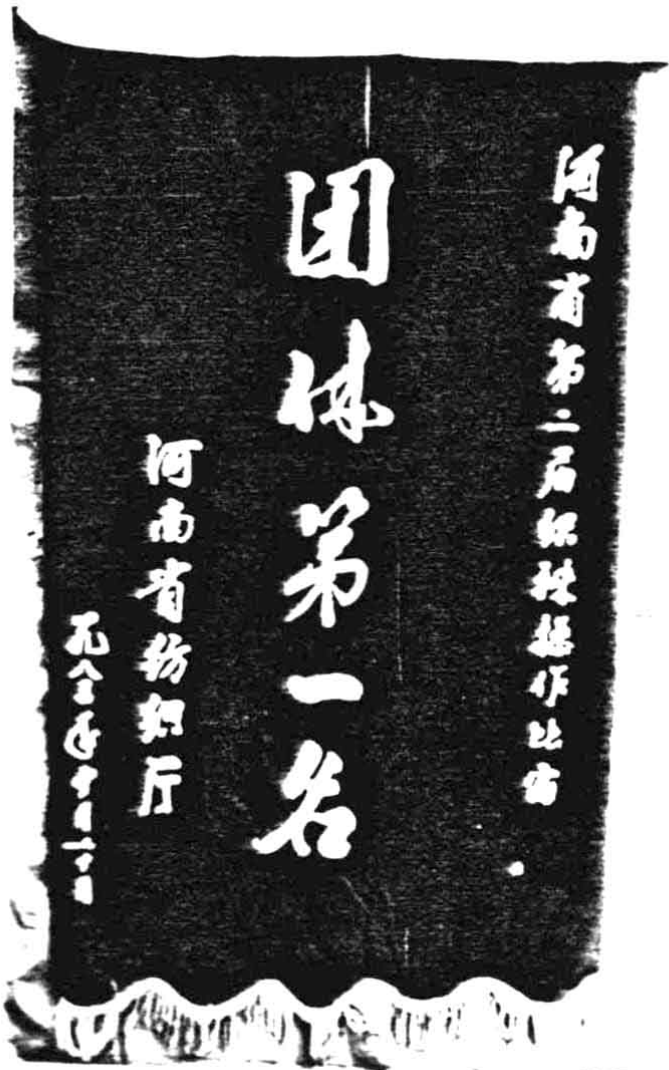 河南省第二届织袜操作比赛
团体第一名
河南省纺织厅
一九八三年十月二十日